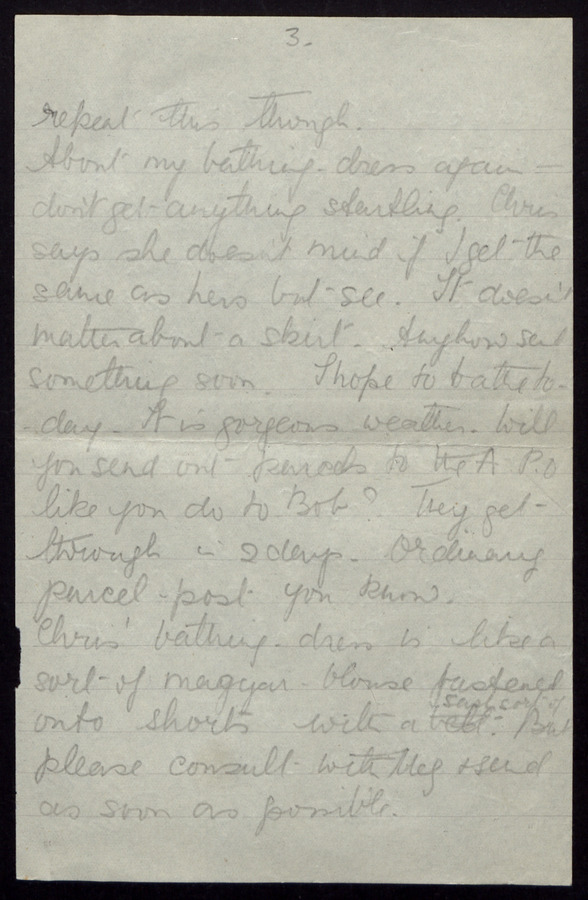 3.
repeat this though.
About my bathing-dress again -
don't get anything startling. Chris
says she doesn't mind if I get the
same as hers but see. It doesn't
matter about a skirt. Anyhow send
something soon. I hope to bathe to-
-day. It is gorgeous weather. Will
you send out parcels to the A P.O
like you do to Bob? They get
through in 2 days. Ordinary
parcel-post you know.
Chris' bathing-dress is like a
sort of magyar-blouse fastened
sash sort of
onto shorts with a belt. But
please consult with Meg & send
as soon as possible.